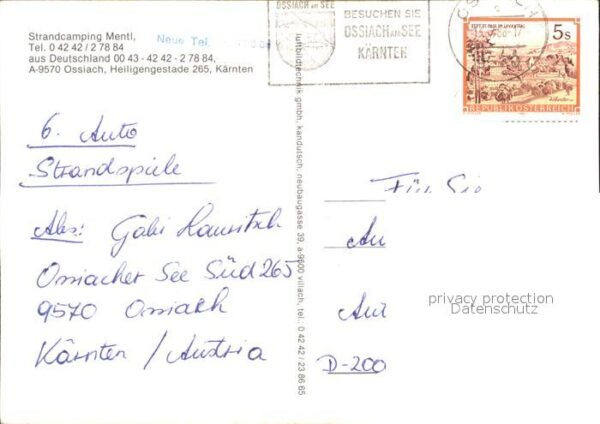 Strandcamping Mentl,
Tel. 0 42 42 / 2 78 84
aus Deutschland 00 43 - 42 42 - 2 78 84,
A-9570 Ossiach, Heiligengestade 265, Kärnten
Neue Tel.
OSSIACH am SEE
BESUCHEN SIE
OSSIACH am SEE
KÄRNTEN
5s
REPUBLIK ÖSTERREICH
luftbildtechnik gmbh, kandutsch, neubaugasse 39, a-9500 villach, tel. 0 42 42 / 23 86 65
6. Auto
Strandspiele
Abs: Gabi
Ossiacher See Süd 265
9570 Ossiach
Kärnten / Austria
Für Sie
An
An
D-200
privacy protection
Datenschutz